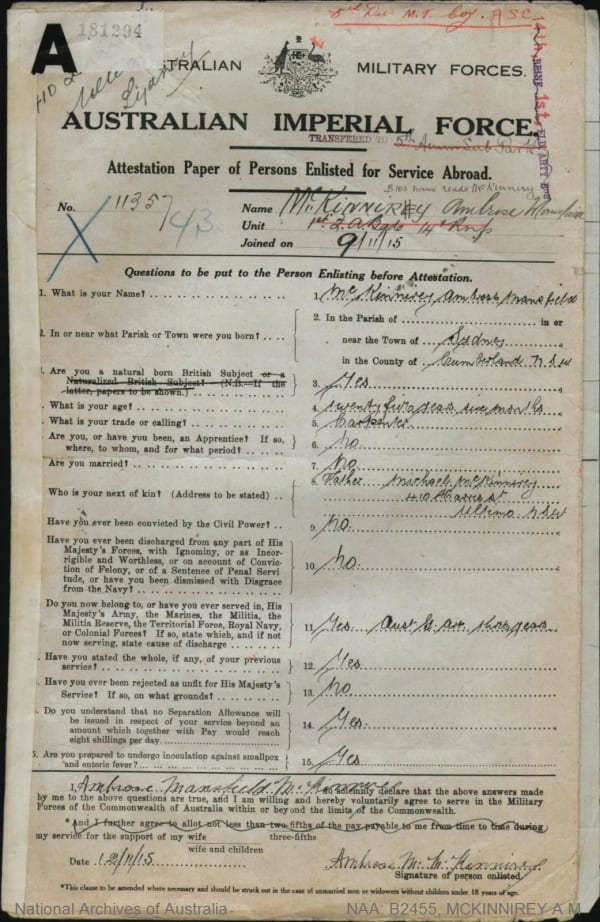 5th Div M.T. Coy. ASC
A
181294
AUSTRALIAN MILITARY FORCES.
AUSTRALIAN IMPERIAL FORCE.
TRANSFERRED TO 5th Amm Sub Park
Attestation Paper of Persons Enlisted for Service Abroad.
B103 name reads McKinnirey
No. 11357
43
Name McKINNIREY Ambrose Mansfield
Unit
Joined on 9/11/15
Questions to be put to the Person Enlisting before Attestation.
1. What is your Name? 1. McKinnirey Ambrose Mansfield
2. In or near what Parish or Town were you born? 2. In the Parish of in or
near the Town of Sydney
in the County of Cumberland NSW
Are you a natural born British Subject or a
Naturalized British Subject? (N.B.—If the
latter, papers to be shown.) 3. Yes
What is your age? 4. twenty five years nine months
What is your trade or calling? 5. Carpenter
Are you, or have you been, an Apprentice? If so,
where, to whom, and for what period? 6. No
Are you married? 7. No
Who is your next of kin? (Address to be stated) 8. Father Michael McKinnirey
410 Harris St
Ultimo NSW
Have you ever been convicted by the Civil Power? 9. No.
Have you ever been discharged from any part of His
Majesty's Forces, with Ignominy, or as Incor-
rigible and Worthless, or on account of Convic-
tion of Felony, or of a Sentence of Penal Servi-
tude, or have you been dismissed with Disgrace
from the Navy? 10. No.
Do you now belong to, or have you ever served in, His
Majesty's Army, the Marines, the Militia, the
Militia Reserve, the Territorial Force, Royal Navy,
or Colonial Forces? If so, state which, and if not
now serving, state cause of discharge 11. Yes. years
Have you stated the whole, if any, of your previous
service? 12. Yes
Have you ever been rejected as unfit for His Majesty's
Service? If so, on what grounds? 13. No
Do you understand that no Separation Allowance will
be issued in respect of your service beyond an
amount which together with Pay would reach
eight shillings per day 14. Yes.
5. Are you prepared to undergo inoculation against smallpox
and enteric fever? 15. Yes
I, Ambrose Mansfield McKinnirey solemnly declare that the above answers made
by me to the above questions are true, and I am willing and hereby voluntarily agree to serve in the Military
Forces of the Commonwealth of Australia within or beyond the limits of the Commonwealth.
*And I further agree to allot not less than two-fifths of the pay payable to me from time to time during
my service for the support of my wife three-fifths
wife and children
Date 12/11/15 Ambrose M. McKinnirey
Signature of person enlisted.
*This clause to be amended where necessary and should be struck out in the case of unmarried men or widowers without children under 18 years of age.
National Archives of Australia NAA: B2455, MCKINNIREY A M